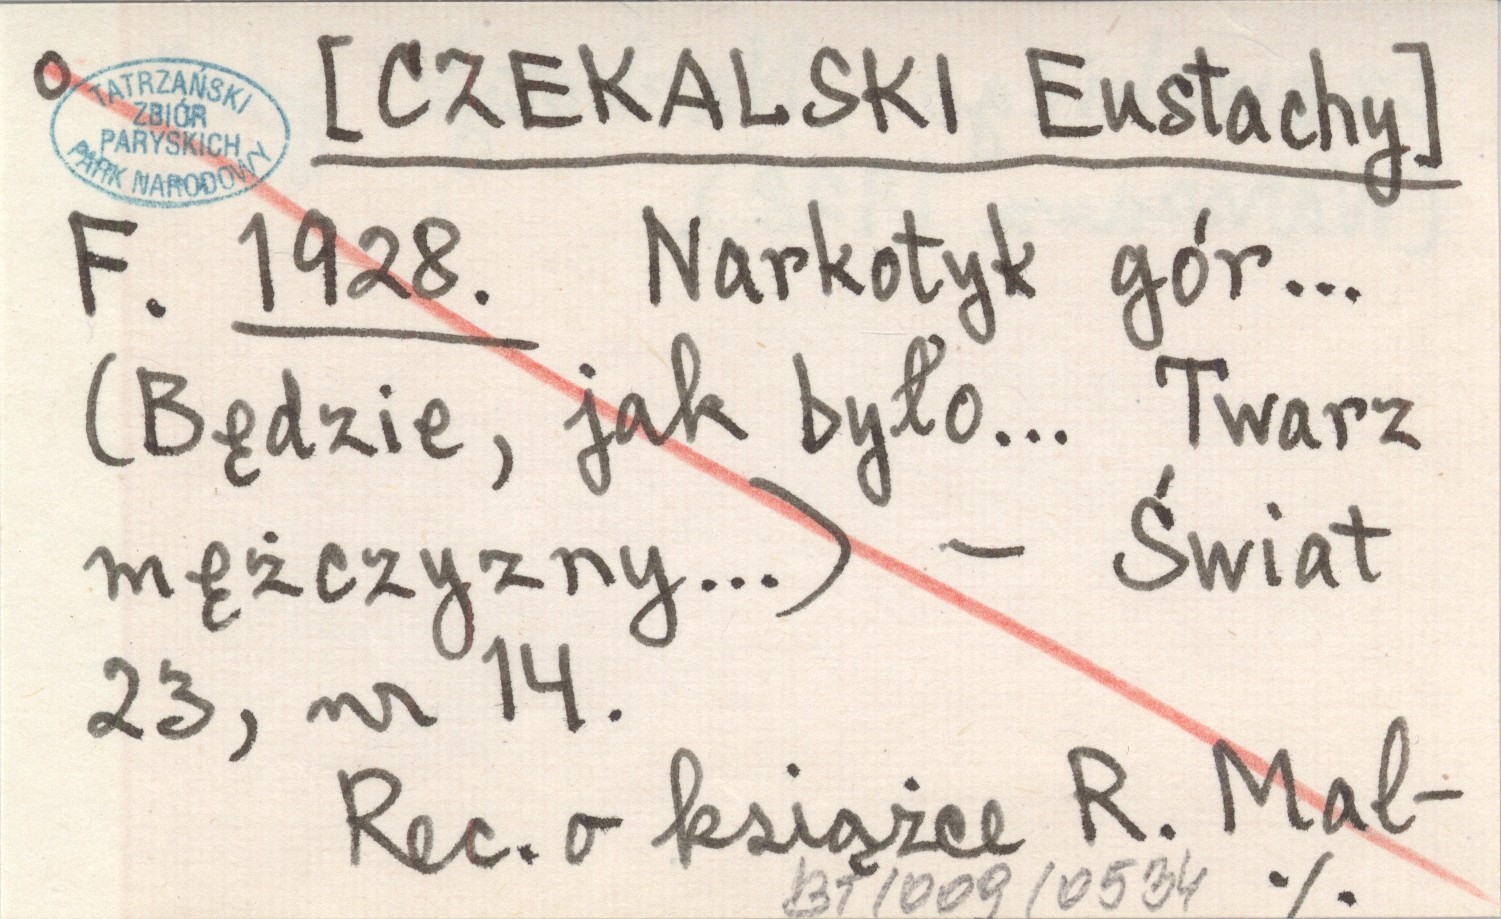 o
TATRZAŃSKI
ZBIÓR
PARYSKICH
PARK NARODOWY
[CZEKALSKI Eustachy]
F. 1928. Narkotyk gór...
(Będzie, jak było... Twarz
mężczyzny...) – Świat
23, nr 14.
Rec. o książce R. Mal-
BT/009/0534
./.